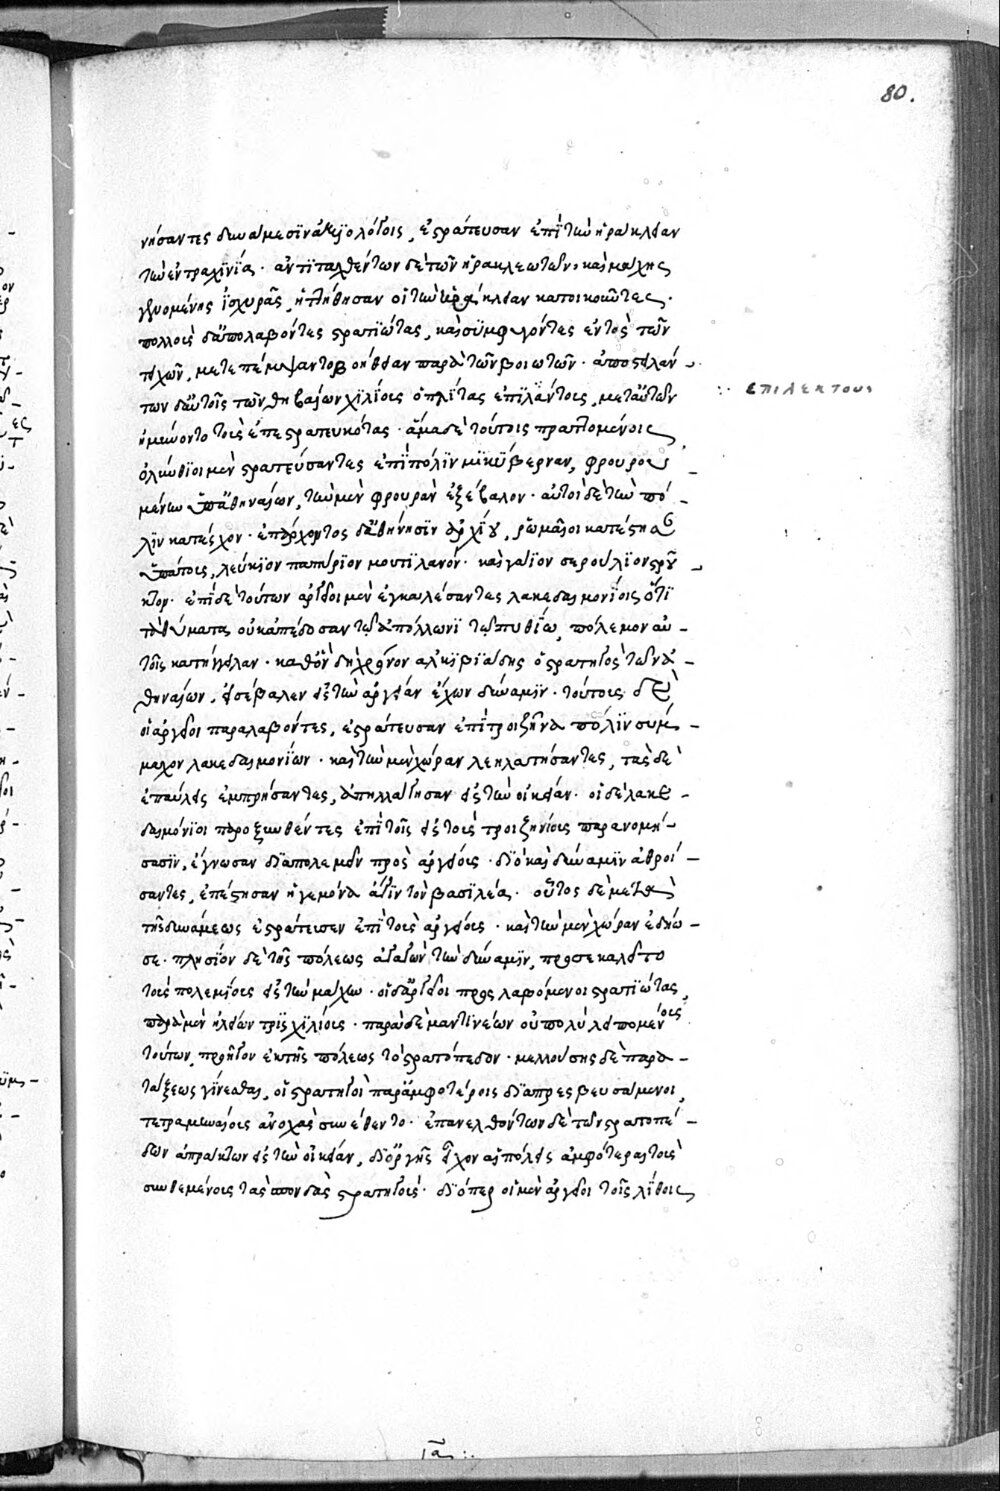 80.
νήσαντες δυνάμεσιν ἀξιολόγοις, ἐστράτευσαν ἐπὶ τὴν ἡράκλειαν
τὴν ἐν τραχινία. ἀντιταχθέντων δὲ τῶν ἡρακλεωτῶν, καὶ μάχης
γενομένης ἰσχυρᾶς, ἡττήθησαν οἱ τὴν ἡράκλειαν κατοικοῦντες.
πολλοὺς δ' ἀπολαβόντες στρατιώτας, καὶ συμφυγόντες ἐντὸς τῶν
τειχῶν, μετεπέμψαντο βοήθειαν παρὰ τῶν βοιωτῶν. ἀποστειλάν-
των δ' αὐτοῖς τῶν θηβαίων χιλίους ὁπλίτας ἐπιλάντους, μετ' αὐτῶν
ἐπιλεκτους
ἠμύνοντο τοὺς ἐπεστρατευκότας. ἅμα δὲ τούτοις πραττομένοις
ὀλύνθιοι μὲν στρατεύσαντες ἐπὶ πόλιν μικύβερναν, φρουρου-
μένην ὑπ' ἀθηναίων, τὴν μὲν φρουρὰν ἐξέβαλον. αὐτοὶ δὲ τὴν πό-
λιν κατέσχον. ἐπ' ἄρχοντος δ' ἀθήνησιν ἀρχίου, ῥωμαῖοι κατέστησαν
ὑπάτους, λεύκιον παπίριον μουτιλανόν. καὶ γάιον σερουίλιον στρού-
κτον. ἐπὶ δὲ τούτων ἀργεῖοι μὲν ἐγκαλέσαντες λακεδαιμονίοις ὅτι
τὰ θύματα οὐκ ἀπέδοσαν τῶ ἀπόλλωνι τῶ πυθίω, πόλεμον αὐ-
τοῖς κατήγγειλαν. καθ' ὃν δὴ χρόνον ἀλκιβιάδης ὁ στρατηγὸς τῶν ἀ-
θηναίων, εἰσέβαλεν εἰς τὴν ἀργείαν ἔχων δύναμιν. τούτους δὲ
οἱ ἀργεῖοι παραλαβόντες, ἐστράτευσαν ἐπὶ τροιζῆνα πόλιν σύμ-
μαχον λακεδαιμονίων. καὶ τὴν μὲν χώραν λεηλατήσαντες, τὰς δὲ
ἐπαύλεις ἐμπρήσαντες, ἀπηλλάγησαν εἰς τὴν οἰκείαν. οἱ δὲ λακε-
δαιμόνιοι παροξυνθέντες ἐπὶ τοῖς εἰς τοὺς τροιζηνίους παρανομή-
μασιν, ἔγνωσαν διαπολεμεῖν πρὸς ἀργείους. διὸ καὶ δύναμιν ἀθροί-
σαντες, ἐπέστησαν ἡγεμόνα ἆγιν τὸν βασιλέα. οὗτος δὲ μετὰ
τῆς δυνάμεως ἐστράτευσεν ἐπὶ τοὺς ἀργείους. καὶ τὴν μὲν χώραν ἐδήω-
σε. πλησίον δὲ τῆς πόλεως ἀγαγὼν τὴν δύναμιν, προσεκαλεῖτο
τοὺς πολεμίους εἰς τὴν μάχην. οἱ δ' ἀργεῖοι προσλαβόμενοι στρατιώτας,
παρὰ μὲν ἠλείων τρισχιλίους. παρὰ δὲ μαντινέων οὐ πολὺ λειπομένους
τούτων, προῆγον ἐκ τῆς πόλεως τὸ στρατόπεδον. μελλούσης δὲ παρα-
τάξεως γίνεσθαι, οἱ στρατηγοὶ παρ' ἀμφοτέροις διαπρεσβευσάμενοι,
τετραμηνιαίους ἀνοχὰς συνέθεντο. ἐπανελθόντων δὲ τῶν στρατοπέ-
δων ἀπράκτων εἰς τὴν οἰκείαν, δι' ὀργῆς εἶχον αἱ πόλεις ἀμφότεραι τοὺς
συνθεμένους τὰς σπονδὰς στρατηγούς. διόπερ οἱ μὲν ἀργεῖοι τοῖς λίθοις